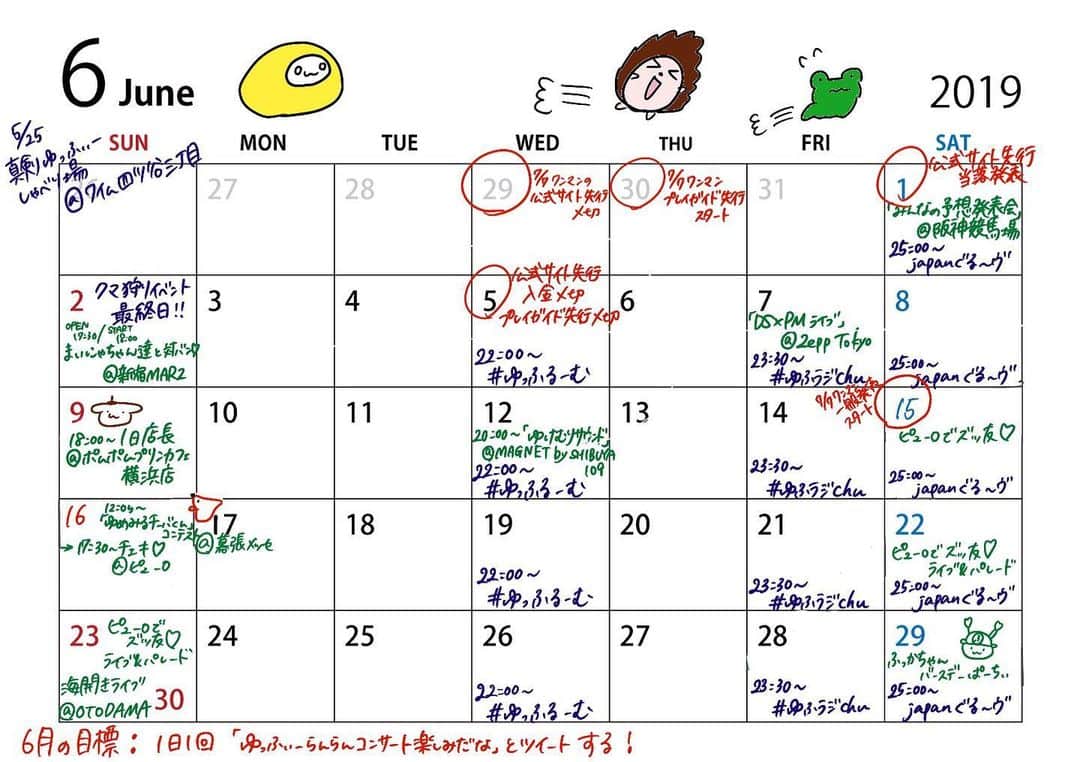 6 June
2019
SUN
MON
TUE
WED
THU
FRI
SAT
5/25
真剣ゆっふぃー
しゃべり場
@ワイム四ツ谷三丁目
27
28
29
7/9ワンマンの
公式サイト先行
〆切
30
7/9ワンマン
プレイガイド先行
スタート
31
1
公式サイト先行
当落発表
「みんなの予想発表会」
@阪神競馬場
25:00~
japanぐる~ヴ
2
クマ狩りイベント
最終日!!
OPEN
17:30/
START
18:00
まいにゃちゃん達と対バン
@新宿MARZ
3
4
5
公式サイト先行
入金〆切
プレイガイド先行〆切
22:00~
#ゆっふるーむ
6
7
「DS×PMライブ」
@Zepp Tokyo
23:30~
#ゆふラジchu
8
25:00~
japanぐる~ヴ
9
18:00~1日店長
@ポムポムプリンカフェ
横浜店
10
11
12
20:00~「ゆけむりサウンド」
@MAGNET by SHIBUYA
109
22:00~
#ゆっふるーむ
13
14
23:30~
#ゆふラジchu
7/9ワンマン
一般発売
スタート
15
ピューロでズッ友♡
25:00~
japanぐる~ヴ
16
「ゆめみるチーバくん」
コンテスト
→17:30~チェキ♡
@ピューロ
17
@幕張メッセ
18
19
22:00~
#ゆっふるーむ
20
21
23:30~
#ゆふラジchu
22
ピューロでズッ友♡
ライブ&パレード
25:00~
japanぐる~ヴ
23
ピューロで
ズッ友♡
ライブ&パレード
海開きライブ
@OTODAMA
30
24
25
26
22:00~
#ゆっふるーむ
27
28
23:30~
#ゆふラジchu
29
ふっかちゃん
バースデーぱーちぃ
25:00~
japanぐる~ヴ
6月の目標:1日1回「ゆっふぃーらんらんコンサート楽しみだな」とツイートする!